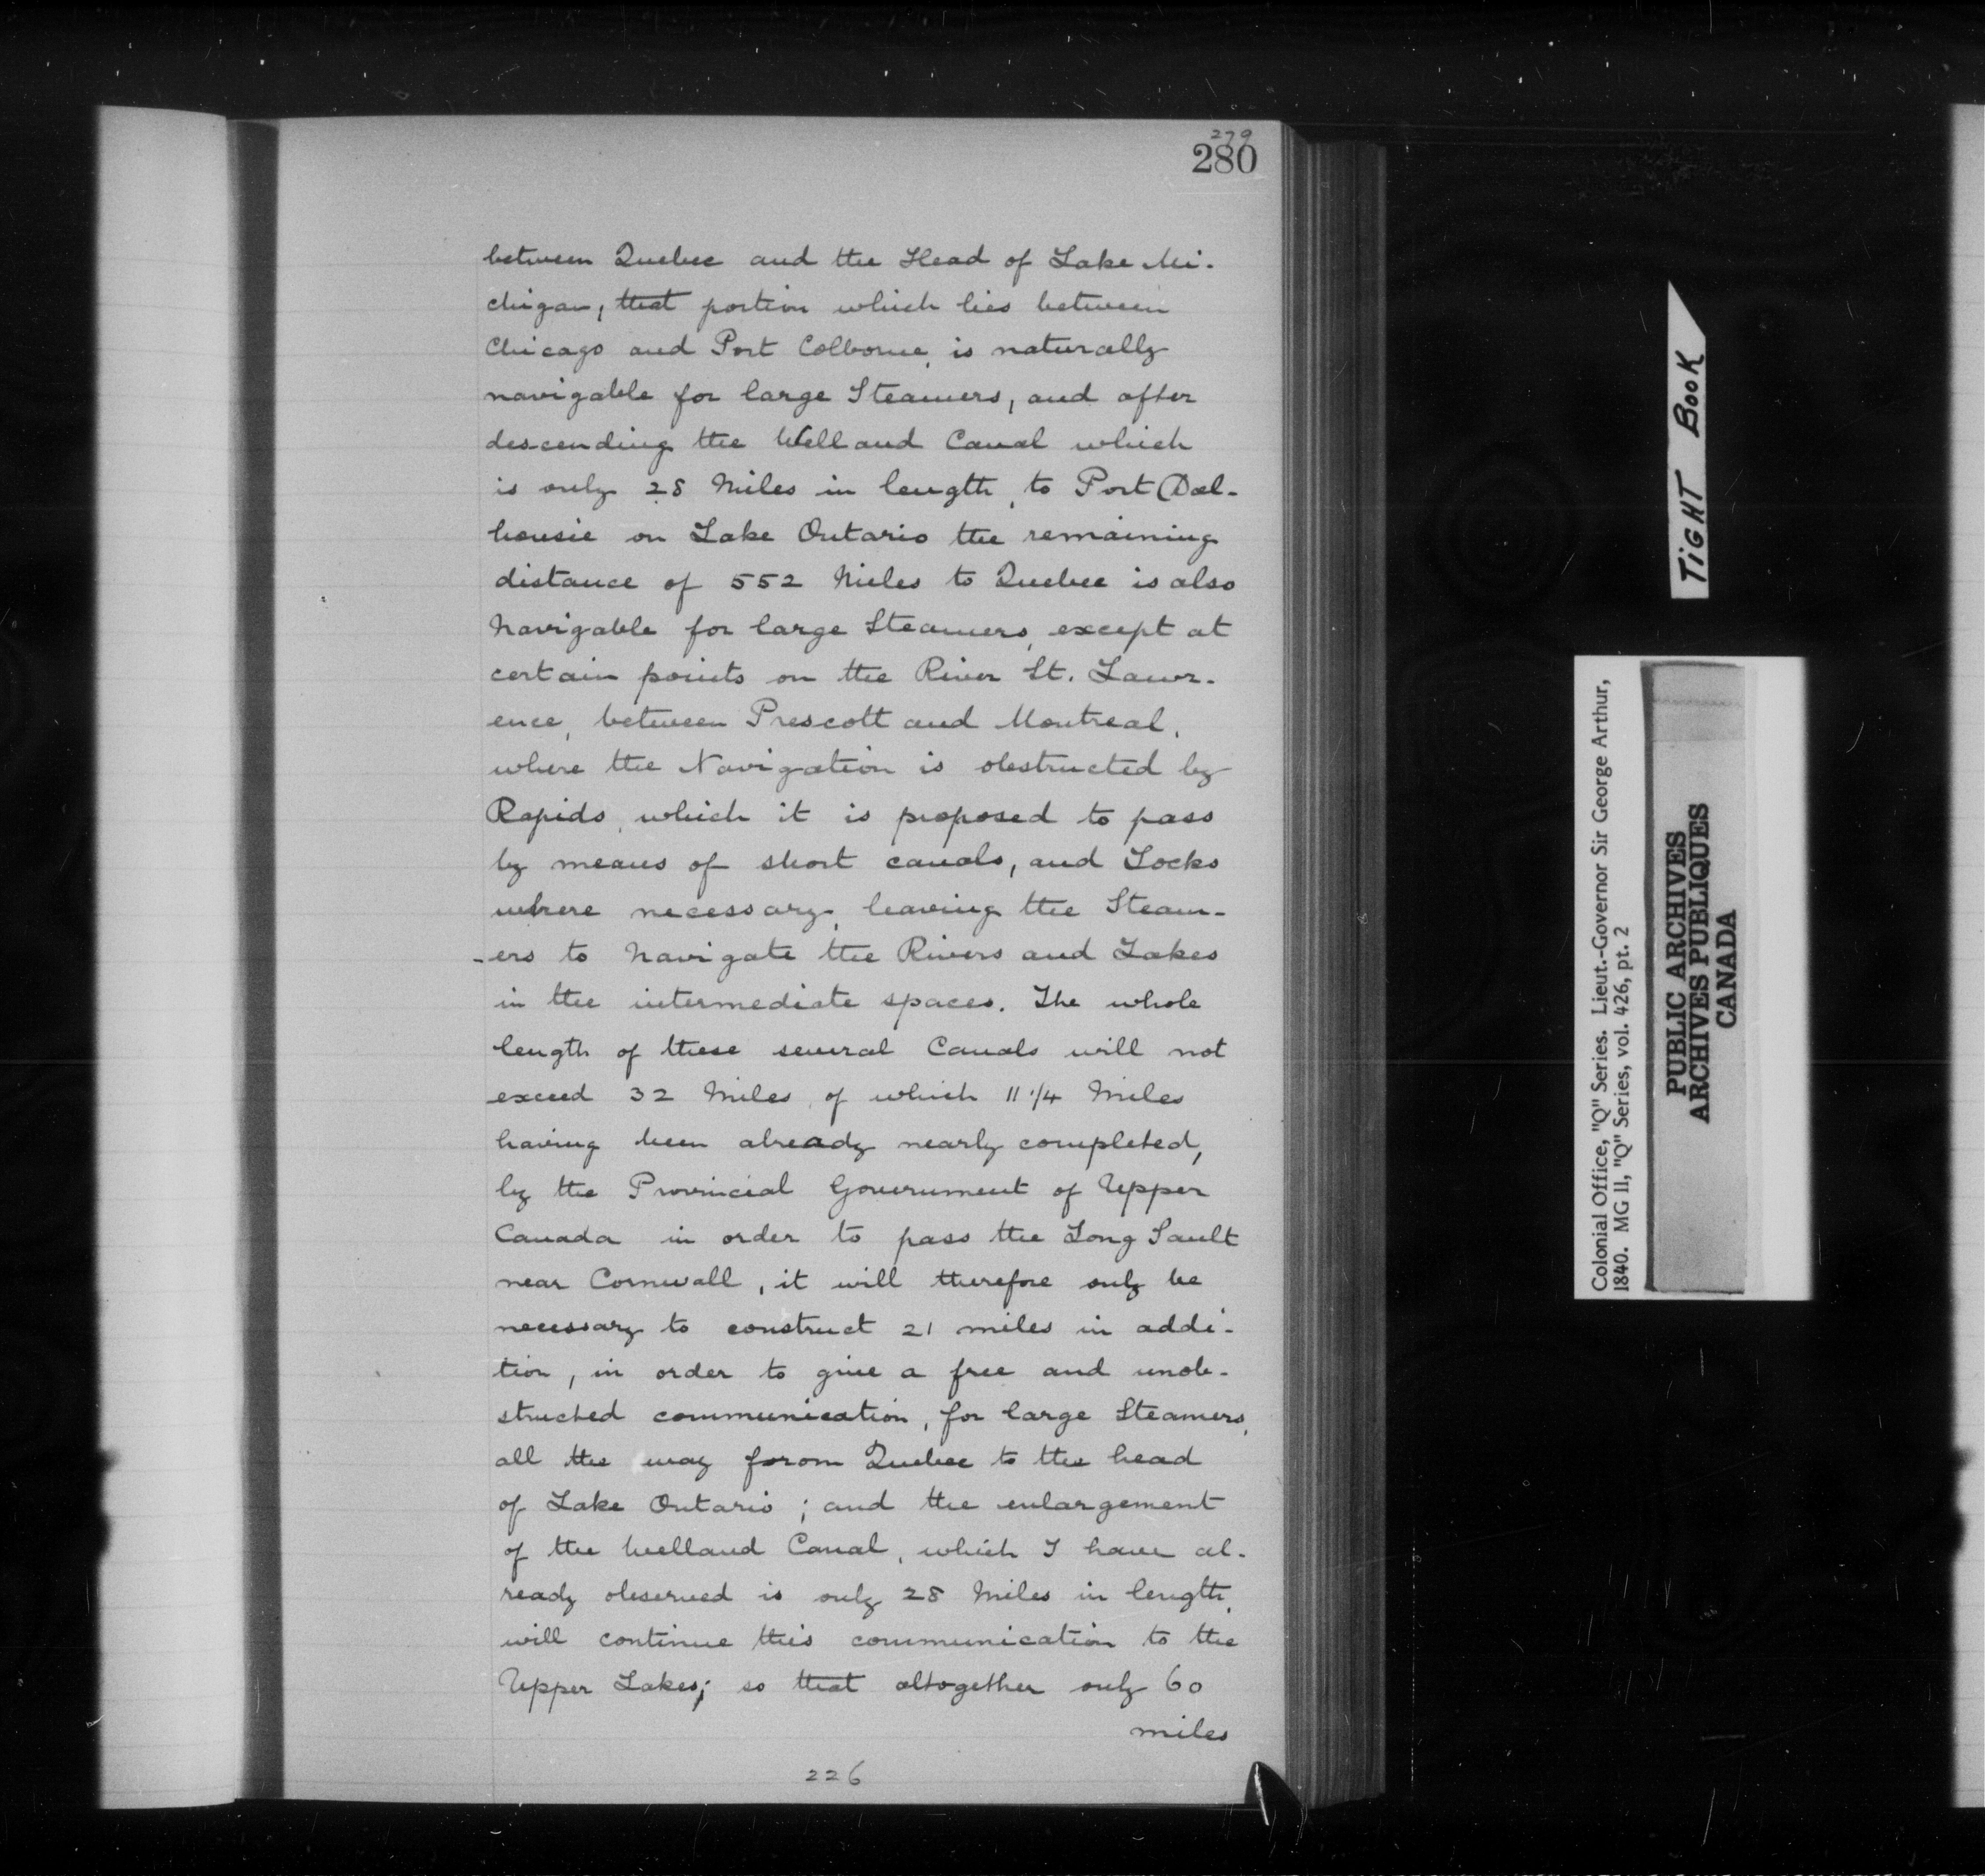 279
280
between Quebec and the Head of Lake Mi-
chigan, that portion which lies between
Chicago and Port Colborne, is naturally
navigable for large Steamers, and after
descending the Welland Canal which
is only 28 Miles in length, to Port Dal-
housie on Lake Ontario the remaining
distance of 552 Miles to Quebec is also
Navigable for large Steamers, except at
certain points on the River St. Lawr-
ence, between Prescott and Montreal,
where the Navigation is obstructed by
Rapids, which it is proposed to pass
by means of short canals, and Locks
where necessary, leaving the Steam-
-ers to Navigate the Rivers and Lakes
in the intermediate spaces. The whole
length of these several Canals will not
exceed 32 Miles, of which 11 1/4 Miles
having been already nearly completed,
by the Provincial Government of Upper
Canada in order to pass the Long Sault
near Cornwall, it will therefore only be
necessary to construct 21 miles in addi-
tion, in order to give a free and unob-
structed communication, for large Steamers,
all the way forom Quebec to the head
of Lake Ontario; and the enlargement
of the Welland Canal, which I have al-
ready observed is only 28 Miles in length,
will continue this communication to the
Upper Lakes; so that altogether only 60
miles
226
TiGHT BOOK
Colonial Office, "Q" Series. Lieut.-Governor Sir George Arthur,
1840. MG 11, "Q" Series, vol. 426, pt. 2
PUBLIC ARCHIVES
ARCHIVES PUBLIQUES
CANADA